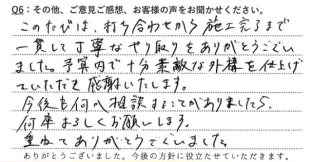 Q6：その他、ご意見ご感想、お客様の声をお聞かせください。
このたびは、打ち合わせから施工完了まで
一貫して丁寧なやり取りをありがとうござい
ました。予算内で十分素敵な外構を仕上げ
ていただき感謝いたします。
今後も何か相談することがありましたら、
何卒よろしくお願いします。
重ねてありがとうございました。
ありがとうございました。今後の方針に役立たせていただきます。